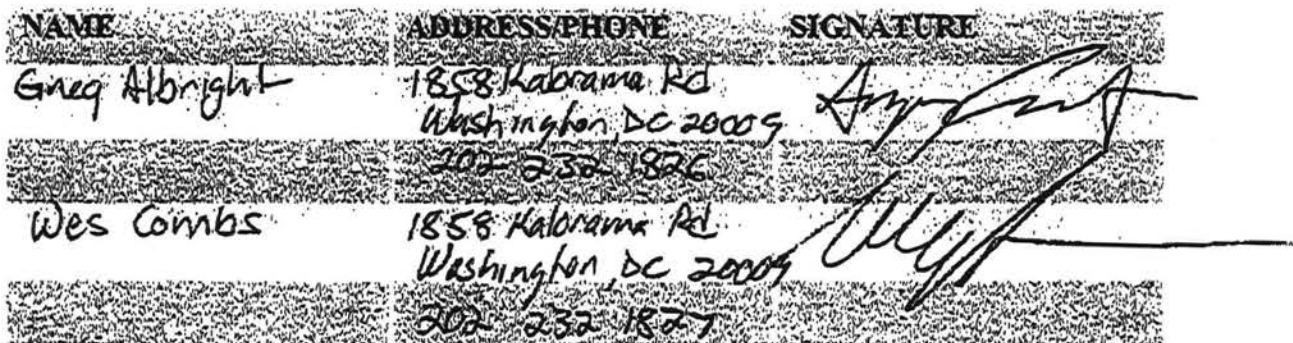 NAME ADDRESS/PHONE SIGNATURE
Greg Albright 1858 Kalorama Rd
Washington, DC 20009
202 232 1826
Wes Combs 1858 Kalorama Rd
Washington, DC 20009
202 232 1827